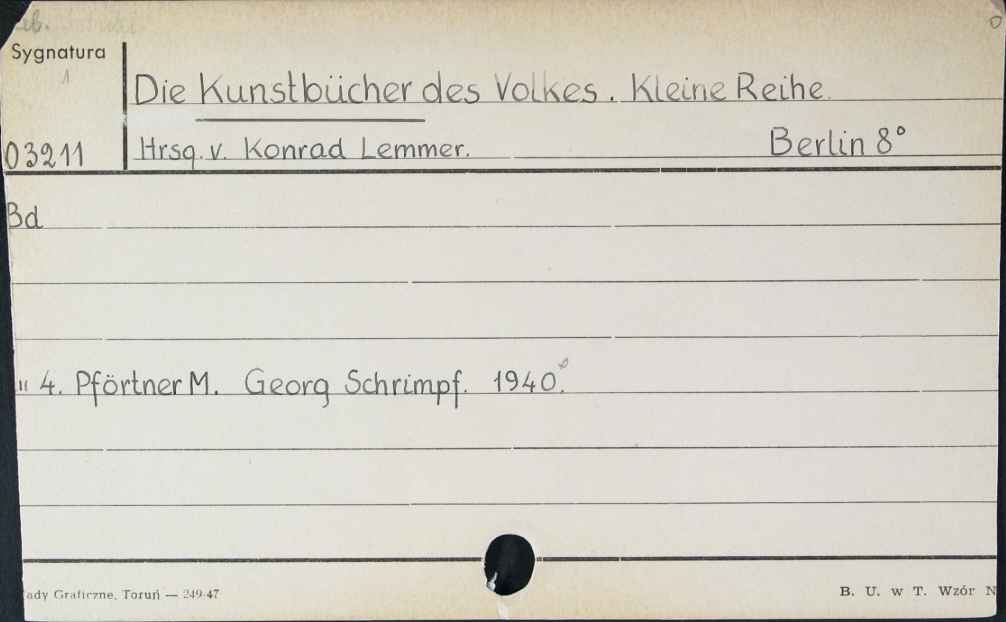 Sygnatura
Die Kunstbücher des Volkes. Kleine Reihe.
03211
Hrsg. v. Konrad Lemmer. Berlin 8°
Bd
" 4. Pförtner M. Georg Schrimpf. 1940.
ady Graficzne, Toruń — 249-47
B. U. w T. Wzór N